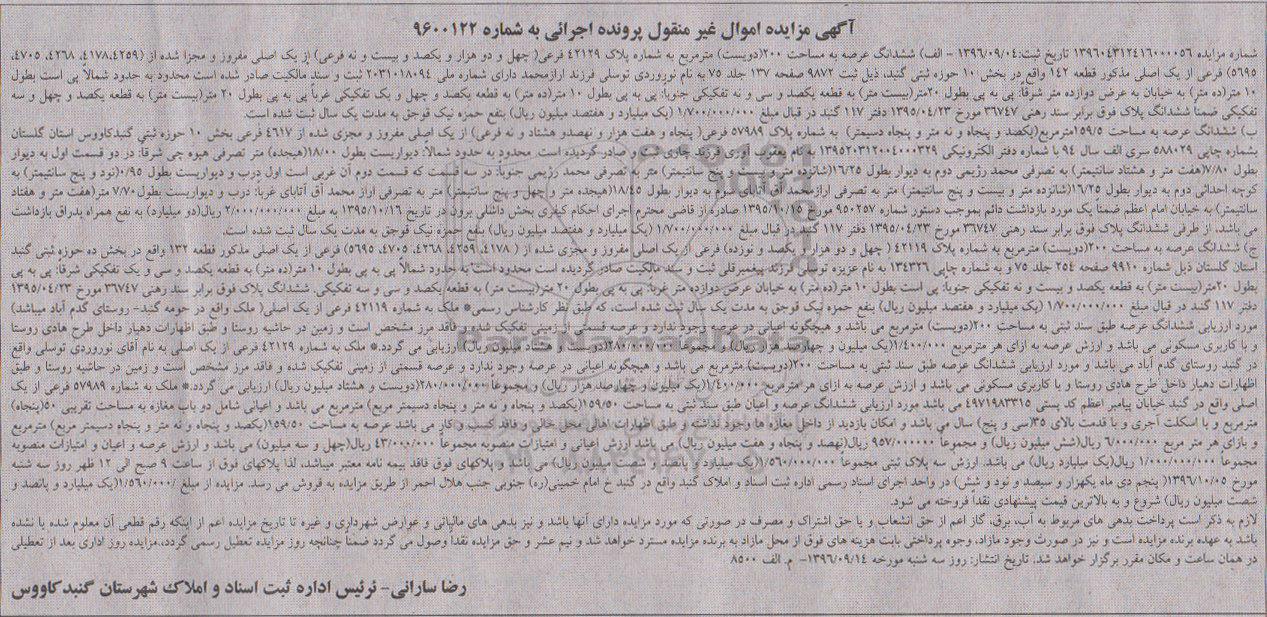 آگهی مزایده اموال غیر منقول پرونده اجرائی به شماره ۹۶۰۰۱۲۲
شماره مزایده ۱۳۹۶۰۴۳۱۲۴۱۶۰۰۰۰۵۶ تاریخ ثبت:۱۳۹۶/۰۹/۰۴ - الف) ششدانگ عرصه به مساحت ۲۰۰(دویست) مترمربع به شماره پلاک ۴۲۱۲۹ فرعی( چهل و دو هزار و یکصد و بیست و نه فرعی) از یک اصلی مفروز و مجزا شده از (۴۱۷۸،۴۲۵۹، ۴۲۶۸، ۴۷۰۵،
۵۶۹۵) فرعی از یک اصلی مذکور قطعه ۱۴۲ واقع در بخش ۱۰ حوزه ثبتی گنبد، ذیل ثبت ۹۸۷۲ صفحه ۱۳۷ جلد ۷۵ به نام نوروردی توسلی فرزند ارازمحمد دارای شماره ملی ۲۰۳۱۰۱۸۰۹۴ ثبت و سند مالکیت صادر شده است محدود به حدود شمالاً پی است بطول
۱۰ متر(ده متر) به خیابان به عرض دوازده متر شرقاً: پی به پی بطول ۲۰متر(بیست متر) به قطعه یکصد و سی و نه تفکیکی جنوبا: پی به پی بطول ۱۰ متر(ده متر) به قطعه یکصد و چهل و یک تفکیکی غرباً پی به پی بطول ۲۰ متر(بیست متر) به قطعه یکصد و چهل و سه
تفکیکی ضمناً ششدانگ پلاک فوق برابر سند رهنی ۳۶۷۴۷ مورخ ۱۳۹۵/۰۴/۲۳ دفتر ۱۱۷ گنبد در قبال مبلغ ۱/۷۰۰/۰۰۰/۰۰۰ (یک میلیارد و هفتصد میلیون ریال) بنفع حمزه نیک قوجق به مدت یک سال ثبت شده است.
ب) ششدانگ عرصه به مساحت ۱۵۹/۵مترمربع(یکصد و پنجاه و نه متر و پنجاه دسیمتر) به شماره پلاک ۵۷۹۸۹ فرعی( پنجاه و هفت هزار و نهصدو هشتاد و نه فرعی) از یک اصلی مفروز و مجزی شده از ۴۶۱۷ فرعی بخش ۱۰ حوزه ثبتی گنبدکاووس استان گلستان
بشماره چاپی ۵۸۸۰۲۹ سری الف سال ۹۴ با شماره دفتر الکترونیکی ۱۳۹۵۲۰۳۱۲۰۰۴۰۰۰۳۲۹ به نام مقرب آوری فرزند چاری ثبت و صادر گردیده است. محدود به حدود شمالا: دیواریست بطول ۱۸/۰۰(هیجده) متر تصرفی هیوه چی شرقاً: در دو قسمت اول به دیوار
بطول ۷/۸۰(هفت متر و هشتاد سانتیمتر) به تصرفی محمد رژیمی دوم به دیوار بطول ۱۶/۲۵(شانزده متر و بیست و پنج سانتیمتر) متر به تصرفی محمد رژیمی جنوبا: در سه قسمت است که قسمت دوم آن غربی است اول درب و دیواریست بطول ۰/۹۵(نود و پنج سانتیمتر) به
کوچه احداثی دوم به دیوار بطول ۱۶/۲۵(شانزده متر و بیست و پنج سانتیمتر) متر به تصرفی ارازمحمد آق آتابای سوم به دیوار بطول ۱۸/۴۵(هیجده متر و چهل و پنج سانتیمتر) متر به تصرفی اراز محمد آق آتابای غربا: درب و دیواریست بطول ۷/۷۰ متر(هفت متر و هفتاد
سانتیمتر) به خیابان امام اعظم ضمناً یک مورد بازداشت دائم بموجب دستور شماره ۹۵۰۲۵۷ مورخ ۱۳۹۵/۱۰/۱۵ صادره از قاضی محترم اجرای احکام کیفری بخش داشلی برون در تاریخ ۱۳۹۵/۱۰/۱۶ به مبلغ ۲/۰۰۰/۰۰۰/۰۰۰ ریال(دو میلیارد) به نفع همراه پدراق بازداشت
می باشد. از طرفی ششدانگ پلاک فوق برابر سند رهنی ۳۶۷۴۷ مورخ ۱۳۹۵/۰۴/۲۳ دفتر ۱۱۷ گنبد در قبال مبلغ ۱/۷۰۰/۰۰۰/۰۰۰ (یک میلیارد و هفتصد میلیون ریال) بنفع حمزه نیک قوجق به مدت یک سال ثبت شده است.
ج) ششدانگ عرصه به مساحت ۲۰۰(دویست) مترمربع به شماره پلاک ۴۲۱۱۹ ( چهل و دو هزار و یکصد و نوزده) فرعی از یک اصلی مفروز و مجزی شده از ( ۴۱۷۸، ۴۲۵۹، ۴۲۶۸، ۴۷۰۵، ۵۶۹۵) فرعی از یک اصلی مذکور قطعه ۱۳۲ واقع در بخش ده حوزه ثبتی گنبد
استان گلستان ذیل شماره ۹۹۱۰ صفحه ۲۵۴ جلد ۷۵ و به شماره چاپی ۱۳۴۳۲۶ به نام عزیزه توسلی فرزند پیغمبرقلی ثبت و سند مالکیت صادر گردیده است محدود است به حدود شمالاً پی به پی بطول ۱۰ متر(ده متر) به قطعه یکصد و سی و یک تفکیکی شرقا: پی به پی
بطول ۲۰متر(بیست متر) به قطعه یکصد و بیست و نه تفکیکی جنوبا: پی است بطول ۱۰ متر(ده متر) به خیابان عرض دوازده متر غربا: پی به پی بطول ۲۰ متر(بیست متر) به قطعه یکصد و سی و سه تفکیکی. ششدانگ پلاک فوق برابر سند رهنی ۳۶۷۴۷ مورخ ۱۳۹۵/۰۴/۲۳
دفتر ۱۱۷ گنبد در قبال مبلغ ۱/۷۰۰/۰۰۰/۰۰۰ (یک میلیارد و هفتصد میلیون ریال) بنفع حمزه یک قوجق به مدت یک سال ثبت شده است، که طبق نظر کارشناس رسمی* ملک به شماره ۴۲۱۱۹ فرعی از یک اصلی( ملک واقع در حومه گنبد- روستای گدم آباد میباشد)
مورد ارزیابی ششدانگ عرصه طبق سند ثبتی به مساحت ۲۰۰(دویست) مترمربع می باشد و هیچگونه اعیانی در عرصه وجود ندارد و عرصه قسمتی از زمینی تفکیک شده و فاقد مرز مشخص است و زمین در حاشیه روستا و طبق اظهارات دهیار داخل طرح هادی روستا
و با کاربری مسکونی می باشد و ارزش عرصه به ازای هر مترمربع ۱/۴۰۰/۰۰۰(یک میلیون و چهارصد هزار ریال) و مجموعاً ۲۸۰/۰۰۰/۰۰۰(دویست و هشتاد میلیون ریال) ارزیابی می گردد.* ملک به شماره ۴۲۱۲۹ فرعی از یک اصلی به نام آقای نوروردی توسلی واقع
در گنبد روستای گدم آباد می باشد و مورد ارزیابی ششدانگ عرصه طبق سند ثبتی به مساحت ۲۰۰(دویست) مترمربع می باشد و هیچگونه اعیانی در عرصه وجود ندارد و عرصه قسمتی از زمینی تفکیک شده و فاقد مرز مشخص است و زمین در حاشیه روستا و طبق
اظهارات دهیار داخل طرح هادی روستا و با کاربری مسکونی می باشد و ارزش عرصه به ازای هر مترمربع ۱/۴۰۰/۰۰۰(یک میلیون و چهارصد هزار ریال) و مجموعاً ۲۸۰/۰۰۰/۰۰۰(دویست و هشتاد میلیون ریال) ارزیابی می گردد.* ملک به شماره ۵۷۹۸۹ فرعی از یک
اصلی واقع در گنبد خیابان پیامبر اعظم کد پستی ۴۹۷۱۹۸۳۳۱۵ می باشد مورد ارزیابی ششدانگ عرصه و اعیان طبق سند ثبتی به مساحت ۱۵۹/۵۰(یکصد و پنجاه و نه متر و پنجاه دسیمتر مربع) مترمربع می باشد و اعیانی شامل دو باب مغازه به مساحت تقریبی ۵۰(پنجاه)
مترمربع و با اسکلت آجری و با قدمت بالای ۳۵(سی و پنج) سال می باشد و امکان بازدید از داخل مغازه ها وجود نداشته و طبق اظهارات اهالی محل خالی و فاقد کسب و کار می باشد عرصه به مساحت ۱۵۹/۵۰(یکصد و پنجاه و نه متر و پنجاه دسیمتر مربع) مترمربع
و بازای هر متر مربع ۶/۰۰۰/۰۰۰ ریال(شش میلیون ریال) و مجموعاً ۹۵۷/۰۰۰/۰۰۰ ریال(نهصد و پنجاه و هفت میلیون ریال) می باشد ارزش اعیانی و امتیازات منصوبه مجموعاً ۴۳/۰۰۰/۰۰۰ ریال(چهل و سه میلیون) می باشد و ارزش عرصه و اعیان و امتیازات منصوبه
مجموعاً ۱/۰۰۰/۰۰۰/۰۰۰ ریال(یک میلیارد ریال) می باشد. ارزش سه پلاک ثبتی مجموعاً ۱/۵۶۰/۰۰۰/۰۰۰(یک میلیارد و پانصد و شصت میلیون ریال) می باشد و پلاکهای فوق فاقد بیمه نامه معتبر میباشد، لذا پلاکهای فوق از ساعت ۹ صبح الی ۱۲ ظهر روز سه شنبه
مورخ ۱۳۹۶/۱۰/۰۵( پنجم دی ماه یکهزار و سیصد و نود و شش) در واحد اجرای اسناد رسمی اداره ثبت اسناد و املاک گنبد واقع در گنبد خ امام خمینی(ره) جنوبی جنب هلال احمر از طریق مزایده به فروش می رسد. مزایده از مبلغ ۱/۵۶۰/۰۰۰/(یک میلیارد و پانصد و
شصت میلیون ریال) شروع و به بالاترین قیمت پیشنهادی نقداً فروخته می شود.
لازم به ذکر است پرداخت بدهی های مربوط به آب، برق، گاز اعم از حق انشعاب و یا حق اشتراک و مصرف در صورتی که مورد مزایده دارای آنها باشد و نیز بدهی های مالیاتی و عوارض شهرداری و غیره تا تاریخ مزایده اعم از اینکه رقم قطعی آن معلوم شده یا نشده
باشد به عهده برنده مزایده است و نیز در صورت وجود مازاد، وجوه پرداختی بابت هزینه های فوق از محل مازاد به برنده مزایده مسترد خواهد شد و نیم عشر و حق مزایده نقداً وصول می گردد ضمناً چنانچه روز مزایده تعطیل رسمی گردد،مزایده روز اداری بعد از تعطیلی
در همان ساعت و مکان مقرر برگزار خواهد شد. تاریخ انتشار: روز سه شنبه مورخه ۱۳۹۶/۰۹/۱۴- م. الف ۸۵۰۰
رضا سارانی- ئرئیس اداره ثبت اسناد و املاک شهرستان گنبدکاووس
ParsNamadData